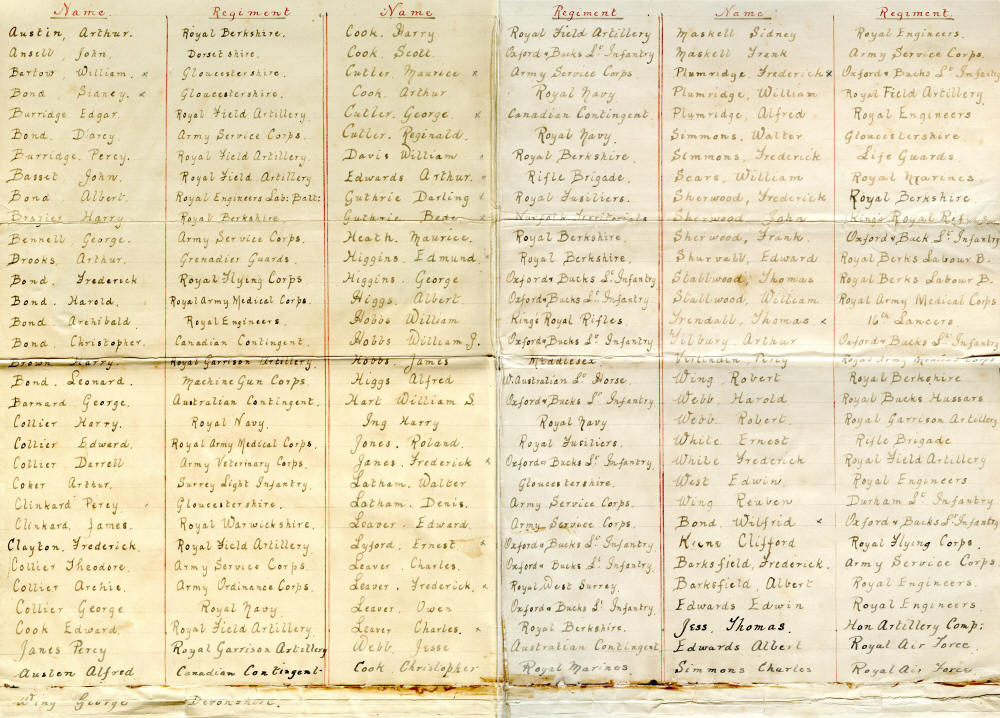 Name Regiment Name Regiment Name Regiment
Austin, Arthur. Royal Berkshire. Cook. Harry Royal Field Artillery Maskell Sidney Royal Engineers.
Ansell, John. Dorset shire. Cook. Scott. Oxford & Bucks Lt. Infantry Maskell Frank Army Service Corps.
Bartow, William. x Gloucestershire. Cutler. Maurice x Army Service Corps. Plumridge. Frederick x Oxford & Bucks Lt Infantry
Bond Sidney. x Gloucestershire. Cook. Arthur Royal Navy Plumridge, William Royal Field Artillery.
Burridge Edgar. Royal Field Artillery. Cutler. George. x Canadian Contingent. Plumridge, Alfred Royal Engineers
Bond. D'arcy Army Service Corps. Cutler. Reginald. Royal Navy. Simmons. Walter Gloucestershire
Burridge. Percy. Royal Field Artillery. Davis William Royal Berkshire. Simmons, Frederick Life Guards.
Basset John. Royal Field Artillery Edwards Arthur. Rifle Brigade. Sears, William Royal Marines
Bond. Albert. Royal Engineers Lab: Batt: Guthrie Darling x Royal Fusiliers. Sherwood, Frederick Royal Berkshire
Brazier Harry Royal Berkshire. Guthrie Bede x Norfolk Territorials Sherwood John Kings Royal Rifles
Bennell, George. Army Service Corps. Heath. Maurice. Royal Berkshire. Sherwood, Frank. Oxford & Buck Lt Infantry
Brooks, Arthur. Grenadier Guards. Higgins. Edmund. Royal Berkshire. Shurvall, Edward Royal Berks Labour B.
Bond. Frederick Royal Flying Corps Higgins. George Oxford & Bucks Lt. Infantry Stallwood Thomas Royal Berks Labour B.
Bond. Harold. Royal Army Medical Corps. Higgs. Albert Oxford & Bucks Lt. Infantry Stallwood, William Royal Army Medical Corps
Bond. Archibald. Royal Engineers. Hobbs William King's Royal Rifles Trendall, Thomas x 16th Lancers
Bond, Christopher. Canadian Contingent. Hobbs William J. Oxford & Bucks Lt. Infantry Tilbury Arthur Oxford & Bucks Lt. Infantry
Brown Harry. Royal Garrison Artillery Hobbs. James Middlesex Percy Royal Army Medical Corps
Bond. Leonard. Machine Gun Corps. Higgs Alfred W. Australian Lt. Horse. Wing. Robert Royal Berkshire
Barnard George. Australian Contingent. Hart William S. Oxford & Bucks Lt Infantry Webb. Harold Royal Bucks Hussars
Collier Harry. Royal Navy. Ing Harry Royal Navy Webb. Robert. Royal Garrison Artillery
Collier Edward. Royal Army Medical Corps. Jones. Roland Royal Fusiliers. White Ernest Rifle Brigade
Collier Darrell Army Veterinary Corps. Janes. Frederick x Oxford & Bucks Lt. Infantry. White. Frederick Royal Field Artillery
Coker Arthur. Surrey Light Infantry. Latham. Walter Gloucestershire. West Edwin. Royal Engineers
Clinkard Percy Gloucestershire. Latham. Denis. Army Service Corps. Wing Reuben Durham Lt Infantry
Clinkard. James. Royal Warwickshire. Leaver. Edward. Army Service Corps. Bond. Wilfrid x Oxford & Bucks Lt. Infantry
Clayton. Frederick. Royal Field Artillery. Lyford. Ernest x Oxford & Bucks Lt. Infantry. Keene Clifford Royal Flying Corps.
Collier Theodore. Army Service Corps. Leaver. Charles. Oxford & Bucks Lt. Infantry. Barksfield, Frederick. Army Service Corps.
Collier Archie. Army Ordinance Corps. Leaver. Frederick. x Royal West Surrey. Barksfield, Albert Royal Engineers.
Collier George Royal Navy Leaver. Owen Oxford & Bucks Lt. Infantry. Edwards Edwin Royal Engineers.
Cook Edward. Royal Field Artillery. Leaver Charles. x Royal Berkshire. Jess, Thomas. Hon Artillery Comp:
Janes Percy Royal Garrison Artillery Webb. Jesse Australian Contingent Edwards Albert Royal Air Force.
Austen Alfred Canadian Contingent- Cook. Christopher Royal Marines Simmons Charles Royal Air Force
Wing George Devonshire.